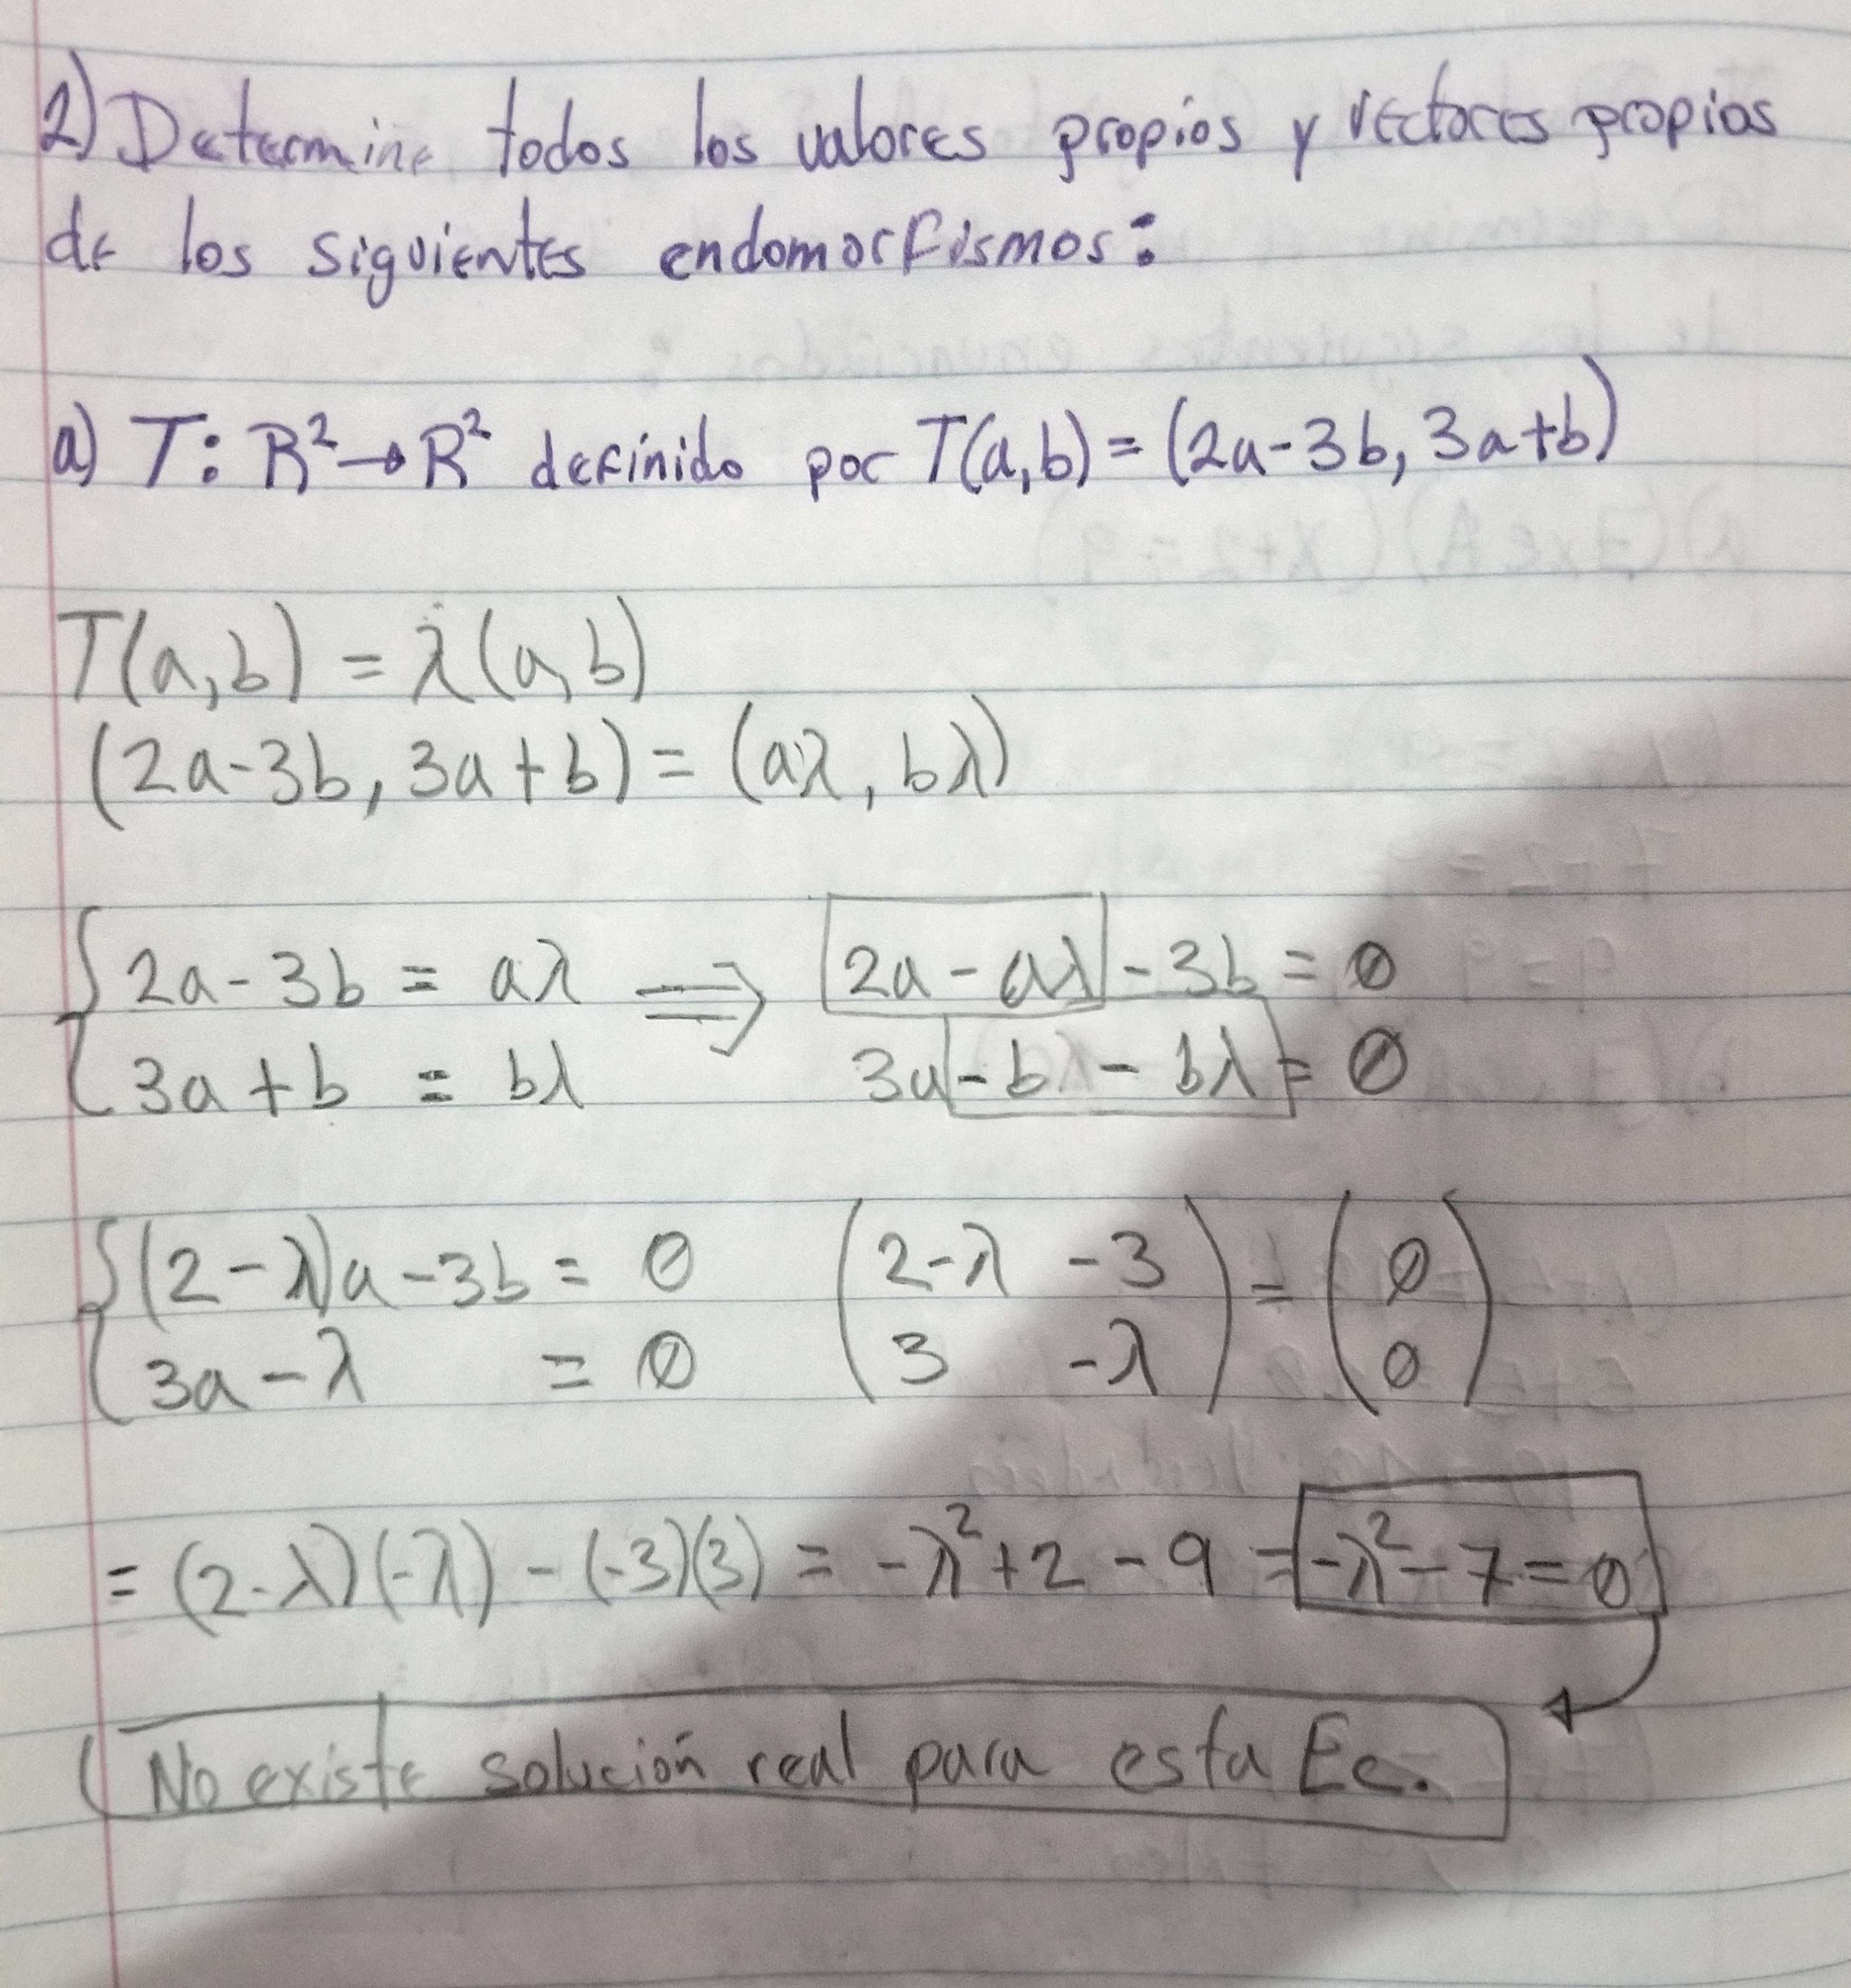 2) Determine todos los valores propios y vectores propios
de los siguientes endomorfismos:
a) T: R² → R² definido por T(a,b) = (2a-3b, 3a+b)
T(a,b) = λ(a,b)
(2a-3b, 3a+b) = (aλ, bλ)
{ 2a-3b = aλ ⟹ 2a - aλ - 3b = 0
3a+b = bλ 3a - b - bλ = 0
{ (2-λ)a - 3b = 0 ( 2-λ -3 ) = ( 0 )
3a - λ = 0 ( 3 -λ ) ( 0 )
= (2-λ)(-λ) - (-3)(3) = -λ²+2-9 = -λ²-7=0
No existe solución real para esta Ec.